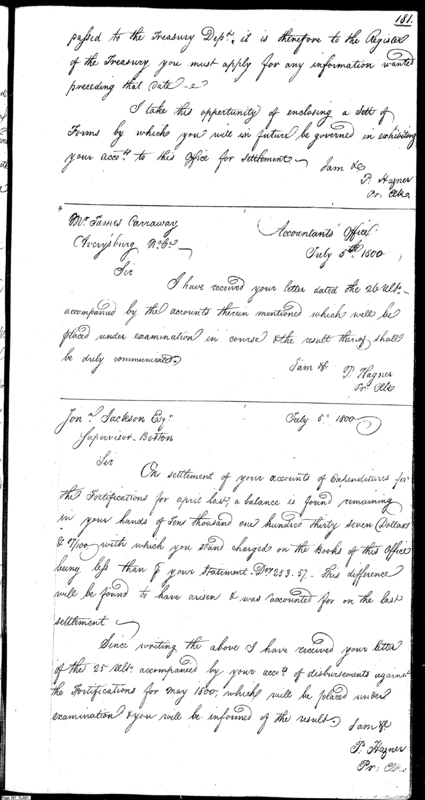 181.
passed to the Treasury Dept. it is therefore to the Register
of the Treasury you must apply for any information wanted
preceding that date
I take this opportunity of enclosing a Sett of
Forms by which you will in future be governed in exhibiting
your accots. to this Office for settlement
I am &c
P. Hagner
Pr. Clk.
Mr. James Carraway
Averysburg No. Ca.
Accountants Office
July 5th. 1800
Sir
I have received your letter dated the 26 Ulto.
accompanied by the accounts therein mentioned which will be
placed under examination in course & the result thereof shall
be duly communicated
I am &c
P. Hagner
Pr. Clk
Jona. Jackson Esqr.
July 5th 1800
Supervisor - Boston
Sir
On settlement of your accounts of Expenditures for
the Fortifications for april last, a balance is found remaining
in your hands of Tens thousand one hundred thirty seven Dollars
& /100 with which you stand charged on the Books of this Office
being less than your statement Drs 233. 57. This difference
will be found to have arisen & was accounted for on the last
settlement
Since writing the above I have received your letter
of the 25 Ulto. accompanied by your accots. of disbursements against
the Fortifications for May 1800, which will be placed under
examination & you will be informed of the result
I am &c
P. Hagner
Pr. Clk.